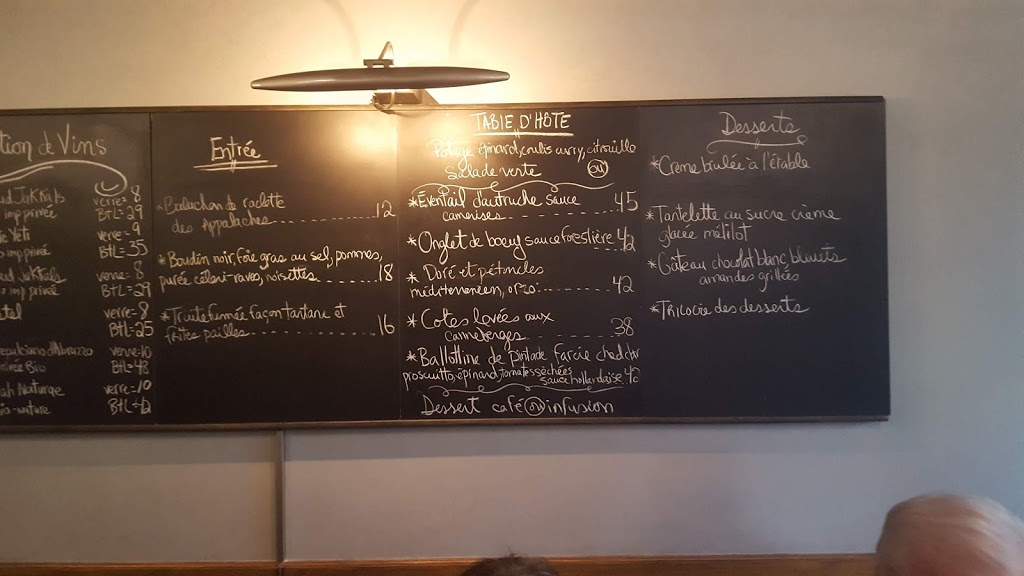 tion de Vins
verre- 8
imp privée
BTL- 29
verre- 9
imp privée
BTL- 35
verre- 8
imp privé
BTL= 29
verre- 8
BTL- 25
verre-10
Bio
BTL= 48
Nature
verre-10
BTL-
Entrée
*Baluchon de raclette
des appalaches 12
*Boudin noir, foie gras au sel, pommes,
purée céleri-raves, noisettes 18
*Truite fumée façon tartare et
frites pailles 16
TABLE D'HÔTE
Potage épinard, coulis curry, citrouille
Salade verte ou
*Éventail d'autruche sauce
camerises 45
*Onglet de boeuf sauce forestière 42
* Doré et pétoncles
méditerranéen, orzo 42
*Cotes levées aux
canneberges 38
*Ballottine de pintade farcie cheddar
prosciutto, épinard, tomates séchées
sauce hollandaise
Dessert café ou infusion
Desserts
*Crème brulée à l'érable
*Tartelette au sucre crème
glacée mélilot
*Gâteau chocolat blanc, bleuets
amandes grillées
*Trilogie des desserts